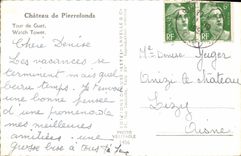 Château de Pierrefonds
Tour de Guet.
Watch Tower.
RF
RF
Chère Denise
Les vacances se
terminent mais quel
beau temps. J'envoie
une bonne pensée
d'une promenade
mes meilleures
amitiées, une
grosse bise à tous
Melle Denise
Amizy le château
Lizy
Aisne